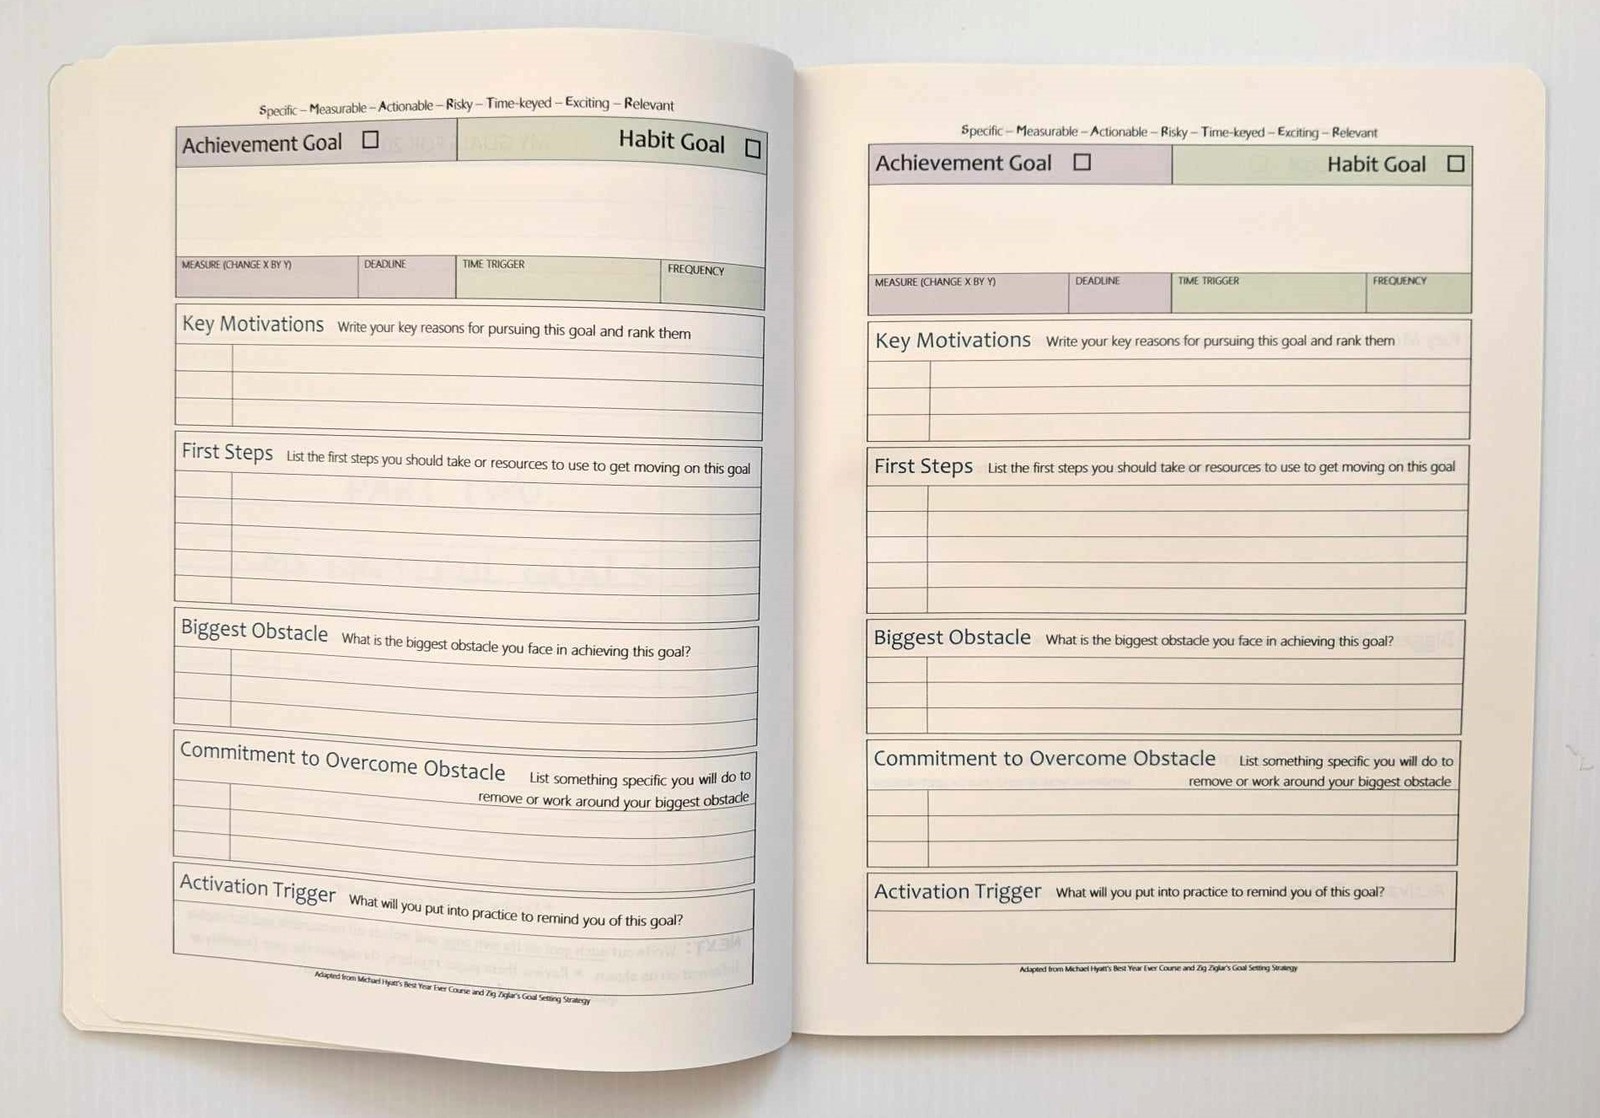 Specific – Measurable – Actionable – Risky – Time-keyed – Exciting – Relevant
Achievement Goal Habit Goal
MEASURE (CHANGE X BY Y) DEADLINE TIME TRIGGER FREQUENCY
Key Motivations Write your key reasons for pursuing this goal and rank them
First Steps List the first steps you should take or resources to use to get moving on this goal
Biggest Obstacle What is the biggest obstacle you face in achieving this goal?
Commitment to Overcome Obstacle List something specific you will do to
remove or work around your biggest obstacle
Activation Trigger What will you put into practice to remind you of this goal?
Adapted from Michael Hyatt's Best Year Ever Course and Zig Ziglar's Goal Setting Strategy
Specific – Measurable – Actionable – Risky – Time-keyed – Exciting – Relevant
Achievement Goal Habit Goal
MEASURE (CHANGE X BY Y) DEADLINE TIME TRIGGER FREQUENCY
Key Motivations Write your key reasons for pursuing this goal and rank them
First Steps List the first steps you should take or resources to use to get moving on this goal
Biggest Obstacle What is the biggest obstacle you face in achieving this goal?
Commitment to Overcome Obstacle List something specific you will do to
remove or work around your biggest obstacle
Activation Trigger What will you put into practice to remind you of this goal?
Adapted from Michael Hyatt's Best Year Ever Course and Zig Ziglar's Goal Setting Strategy